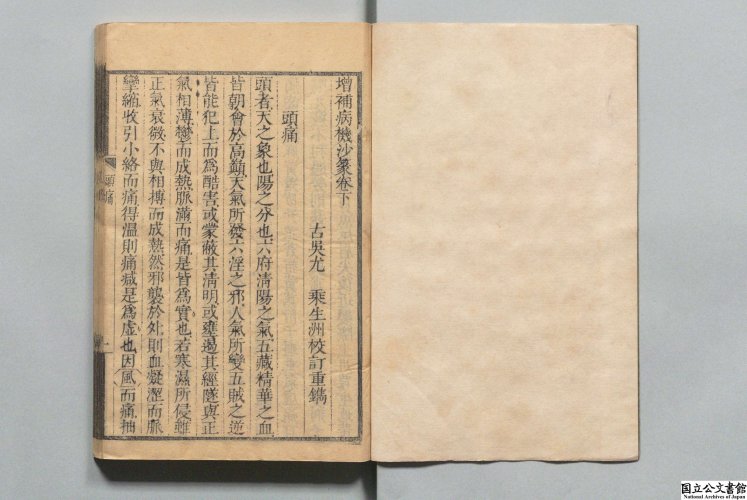 增補病機沙篆卷下
古吳尤　乘生洲校訂重鐫
頭痛
頭者天之象也陽之分也六府清陽之氣五藏精華之血
皆朝會於高顚天氣所發六淫之邪人氣所變五賊之逆
皆能犯上而爲酷害或蒙蔽其清明或壅遏其經隧與正
氣相薄鬱而成熱脈滿而痛是皆爲實也若寒濕所侵雖
正氣衰微不與相搏而成熱然邪襲於外則血凝澀而脈
攣縮收引小絡而痛得溫則痛減是爲虛也因風而痛抽
頭痛
一
国立公文書館
National Archives of Japan